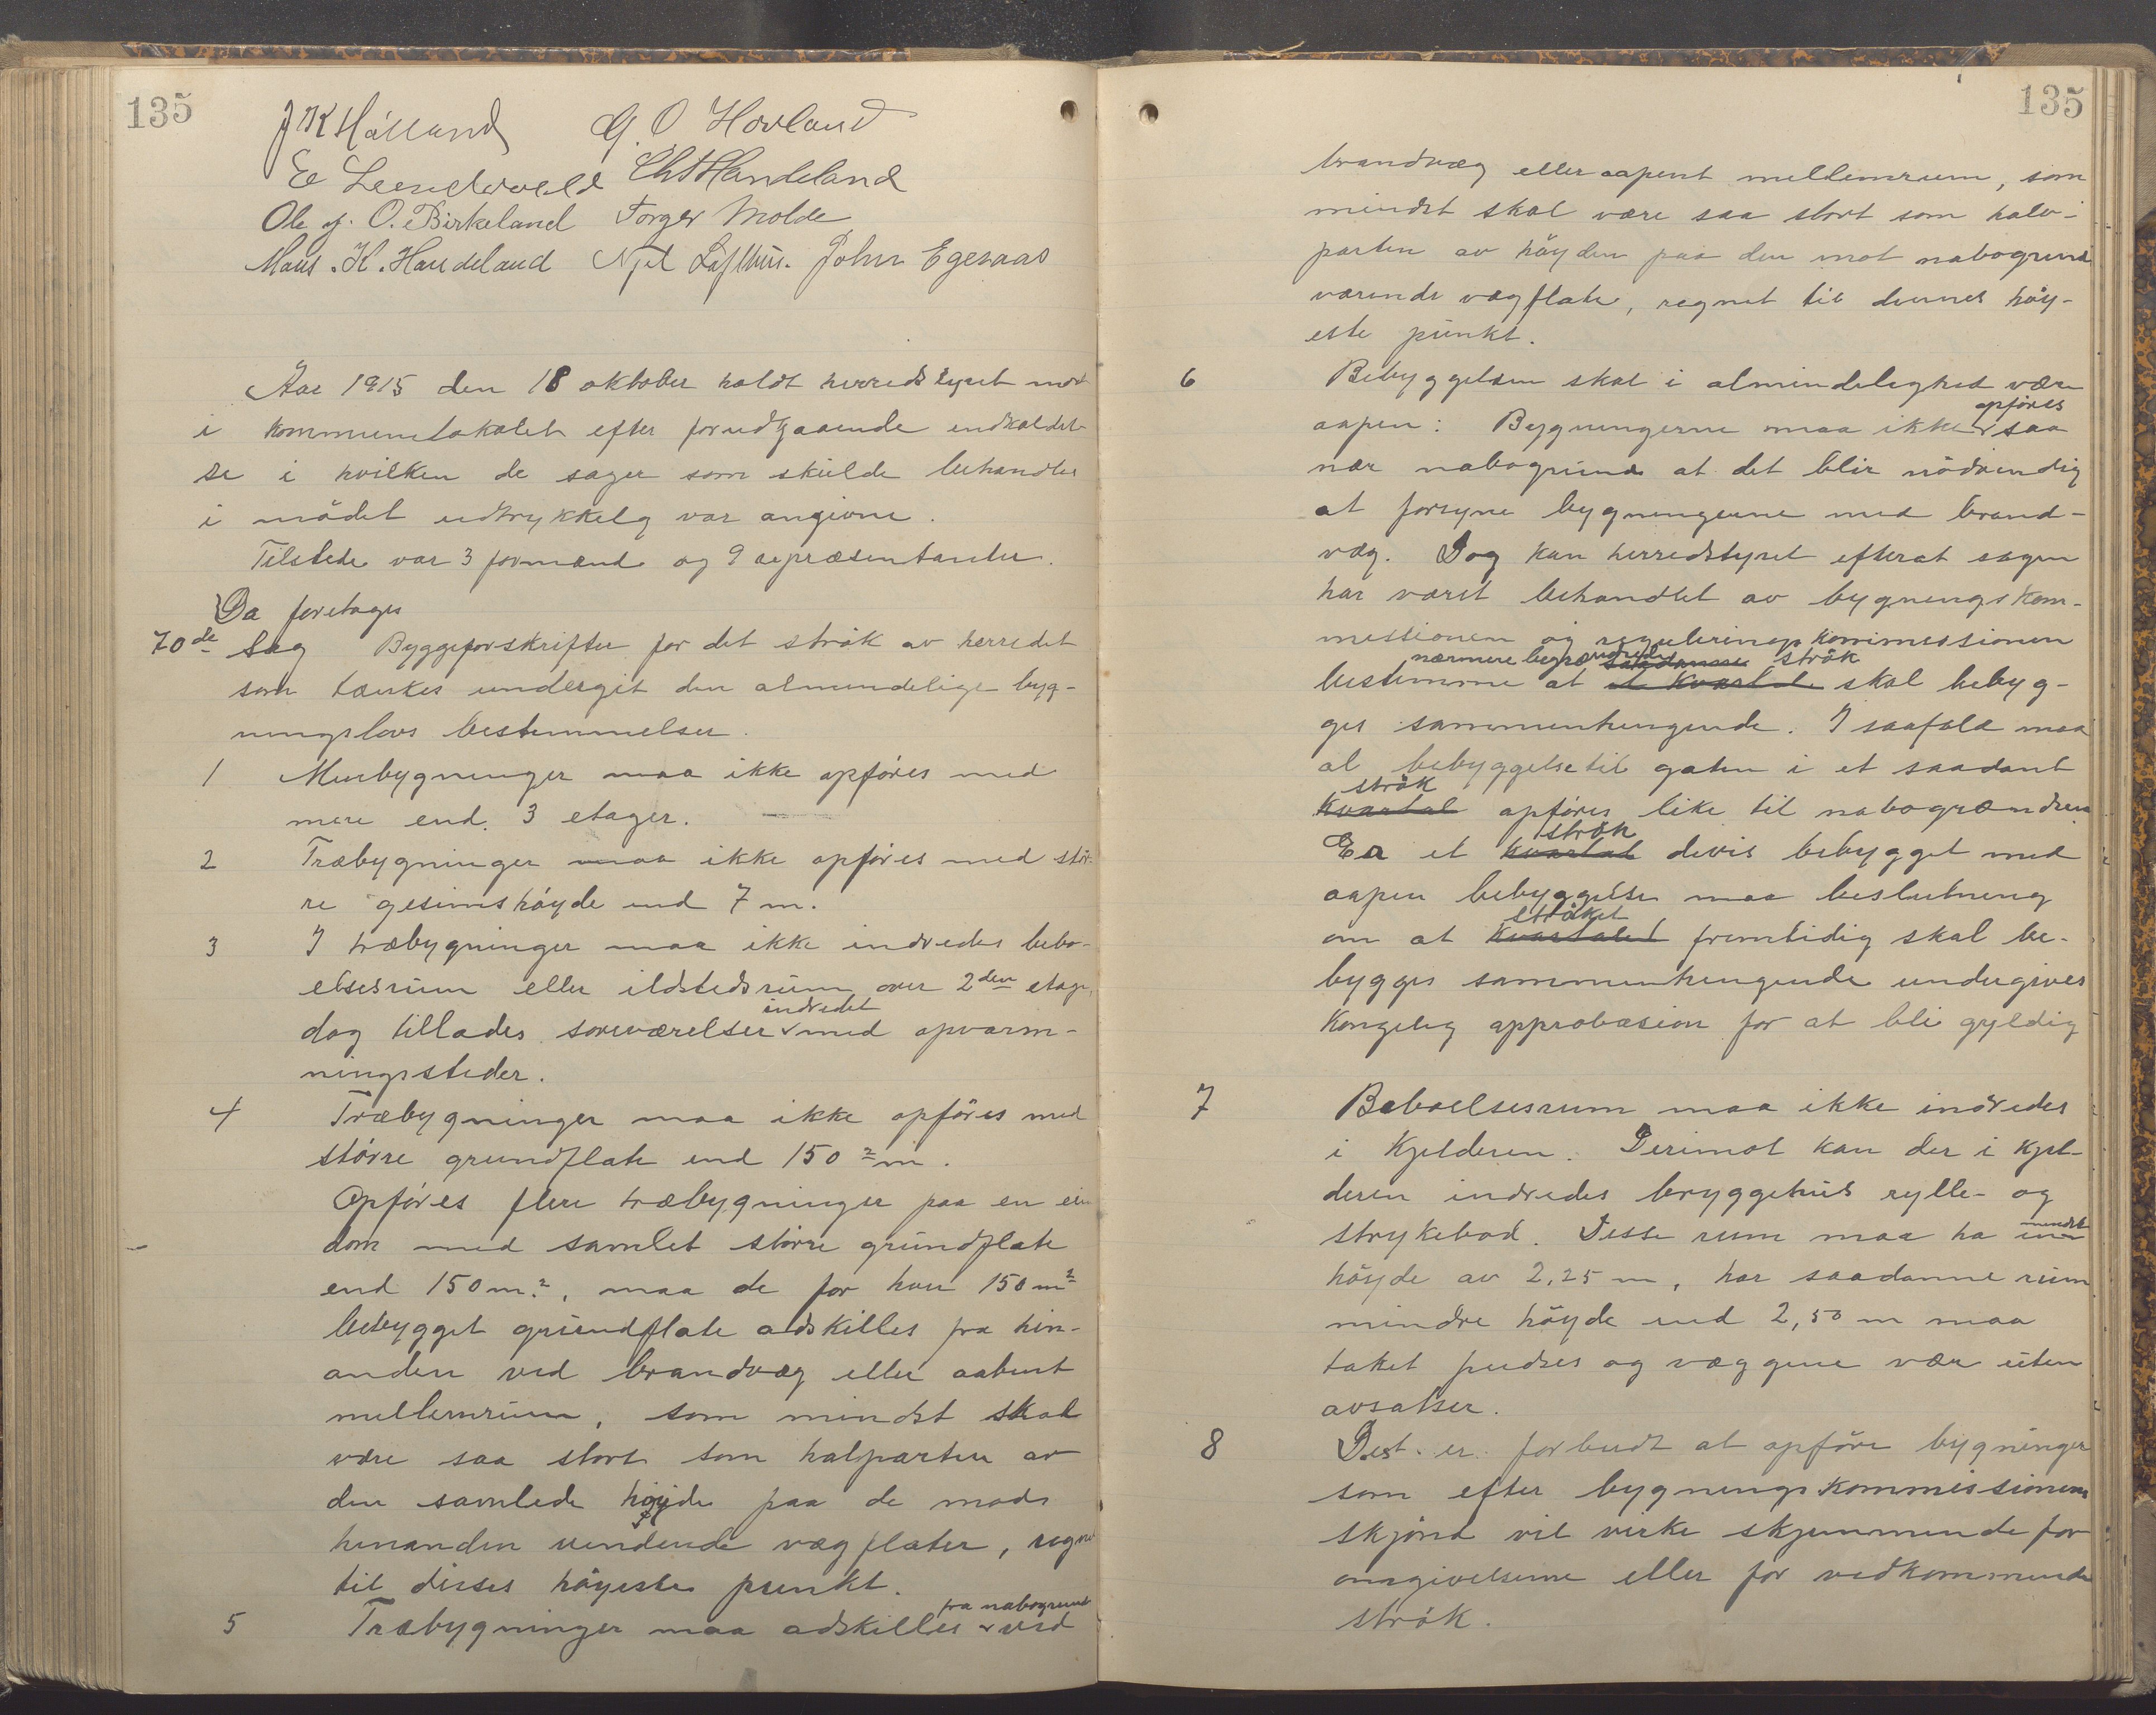 135
J K Hålland G. O Hovland
E Chr Handeland
Ole J. O. Birkeland Torger Molde
Mons. K. Handeland Njel Lofthus. John Egenaas
Aar 1915 den 18 oktober holdt herredstyret möt
i kommunelokalet efter forudgaaende indkaldel-
se i hvilken de sager som skulde behandles
i mödet udtrykkelg var angivne.
Tilstede var 3 formænd og 9 repræsentanter.
Da foretages
70de Sag Byggeforskrifter for det strök av herredet
som tænkes undergit den almindelige byg-
ningslovs bestemmelser.
1 Murbygninger maa ikke opföres med
mere end 3 etager.
2 Træbygninger maa ikke opföres med stör-
re gesimshöyde end 7 m.
3 I træbygninger maa ikke indredes bebo-
elsesrum eller ildstedsrum over 2den etage,
indredet
dog tillades soveværelser med opvarm-
ningssteder.
4 Træbygninger maa ikke opföres med
större grundflate end 150 2m.
Opföres flere træbygninger paa en ein
dom med samlet större grundflate
end 150 m2, maa de for hver 150 m2
bebygget grundflate adskilles fra hin-
anden ved brandvæg eller aabent
mellemrum, som mindst skal
være saa stort som halparten av
den samlede höyde paa de mods
hinanden vendende vægflater, regnet
til disses höyeste punkt.
fra nabogrund
5 Træbygninger maa adskilles ved
135
brandvæg eller aapent mellemrum, som
mindst skal være saa stort som halv-
parten av höyden paa den mot nabogrund
værende vægflate, regnet til dennes höy-
este punkt.
6 Bebyggelsen skal i almindelighed være
opföres
aapen: Bygningerne maa ikke saa
nær nabogrund at det blir nödvendig
at forsyne bygningerne med brand-
væg. Dog kan herredstyret efterat sagen
har været behandlet av bygningskom-
missionen og reguleringskommissionen
nærmere begrændsede saadanne strök
bestemme at et kvartal skal bebyg-
ges sammenhengende. I saafald maa
al bebyggelse til gaten i et saadant
strök
kvartal opföres like til nabogrændsen
strök
Er et kvartal devis bebygget med
aapen bebyggelse maa beslutning
ströket
om at kvartalet fremtidig skal be-
bygges sammenhengende undergives
Kongelig approbasion for at bli gyldig
7 Beboelsesrum maa ikke indredes
i Kjelderen. Derimot kan der i kjel-
deren indredes bryggehus rylle- og
mindst
strykebod. Disse rum maa ha en
höyde av 2,25 m, har saadanne rum
mindre höyde end 2,50 m maa
taket pudses og væggene vær uten
avsatser.
8 Det er forbudt at opföre bygninger
som efter bygningskommissionens
skjönd vil virke skjemmende for
omgivelserne eller for vedkommende
strök.